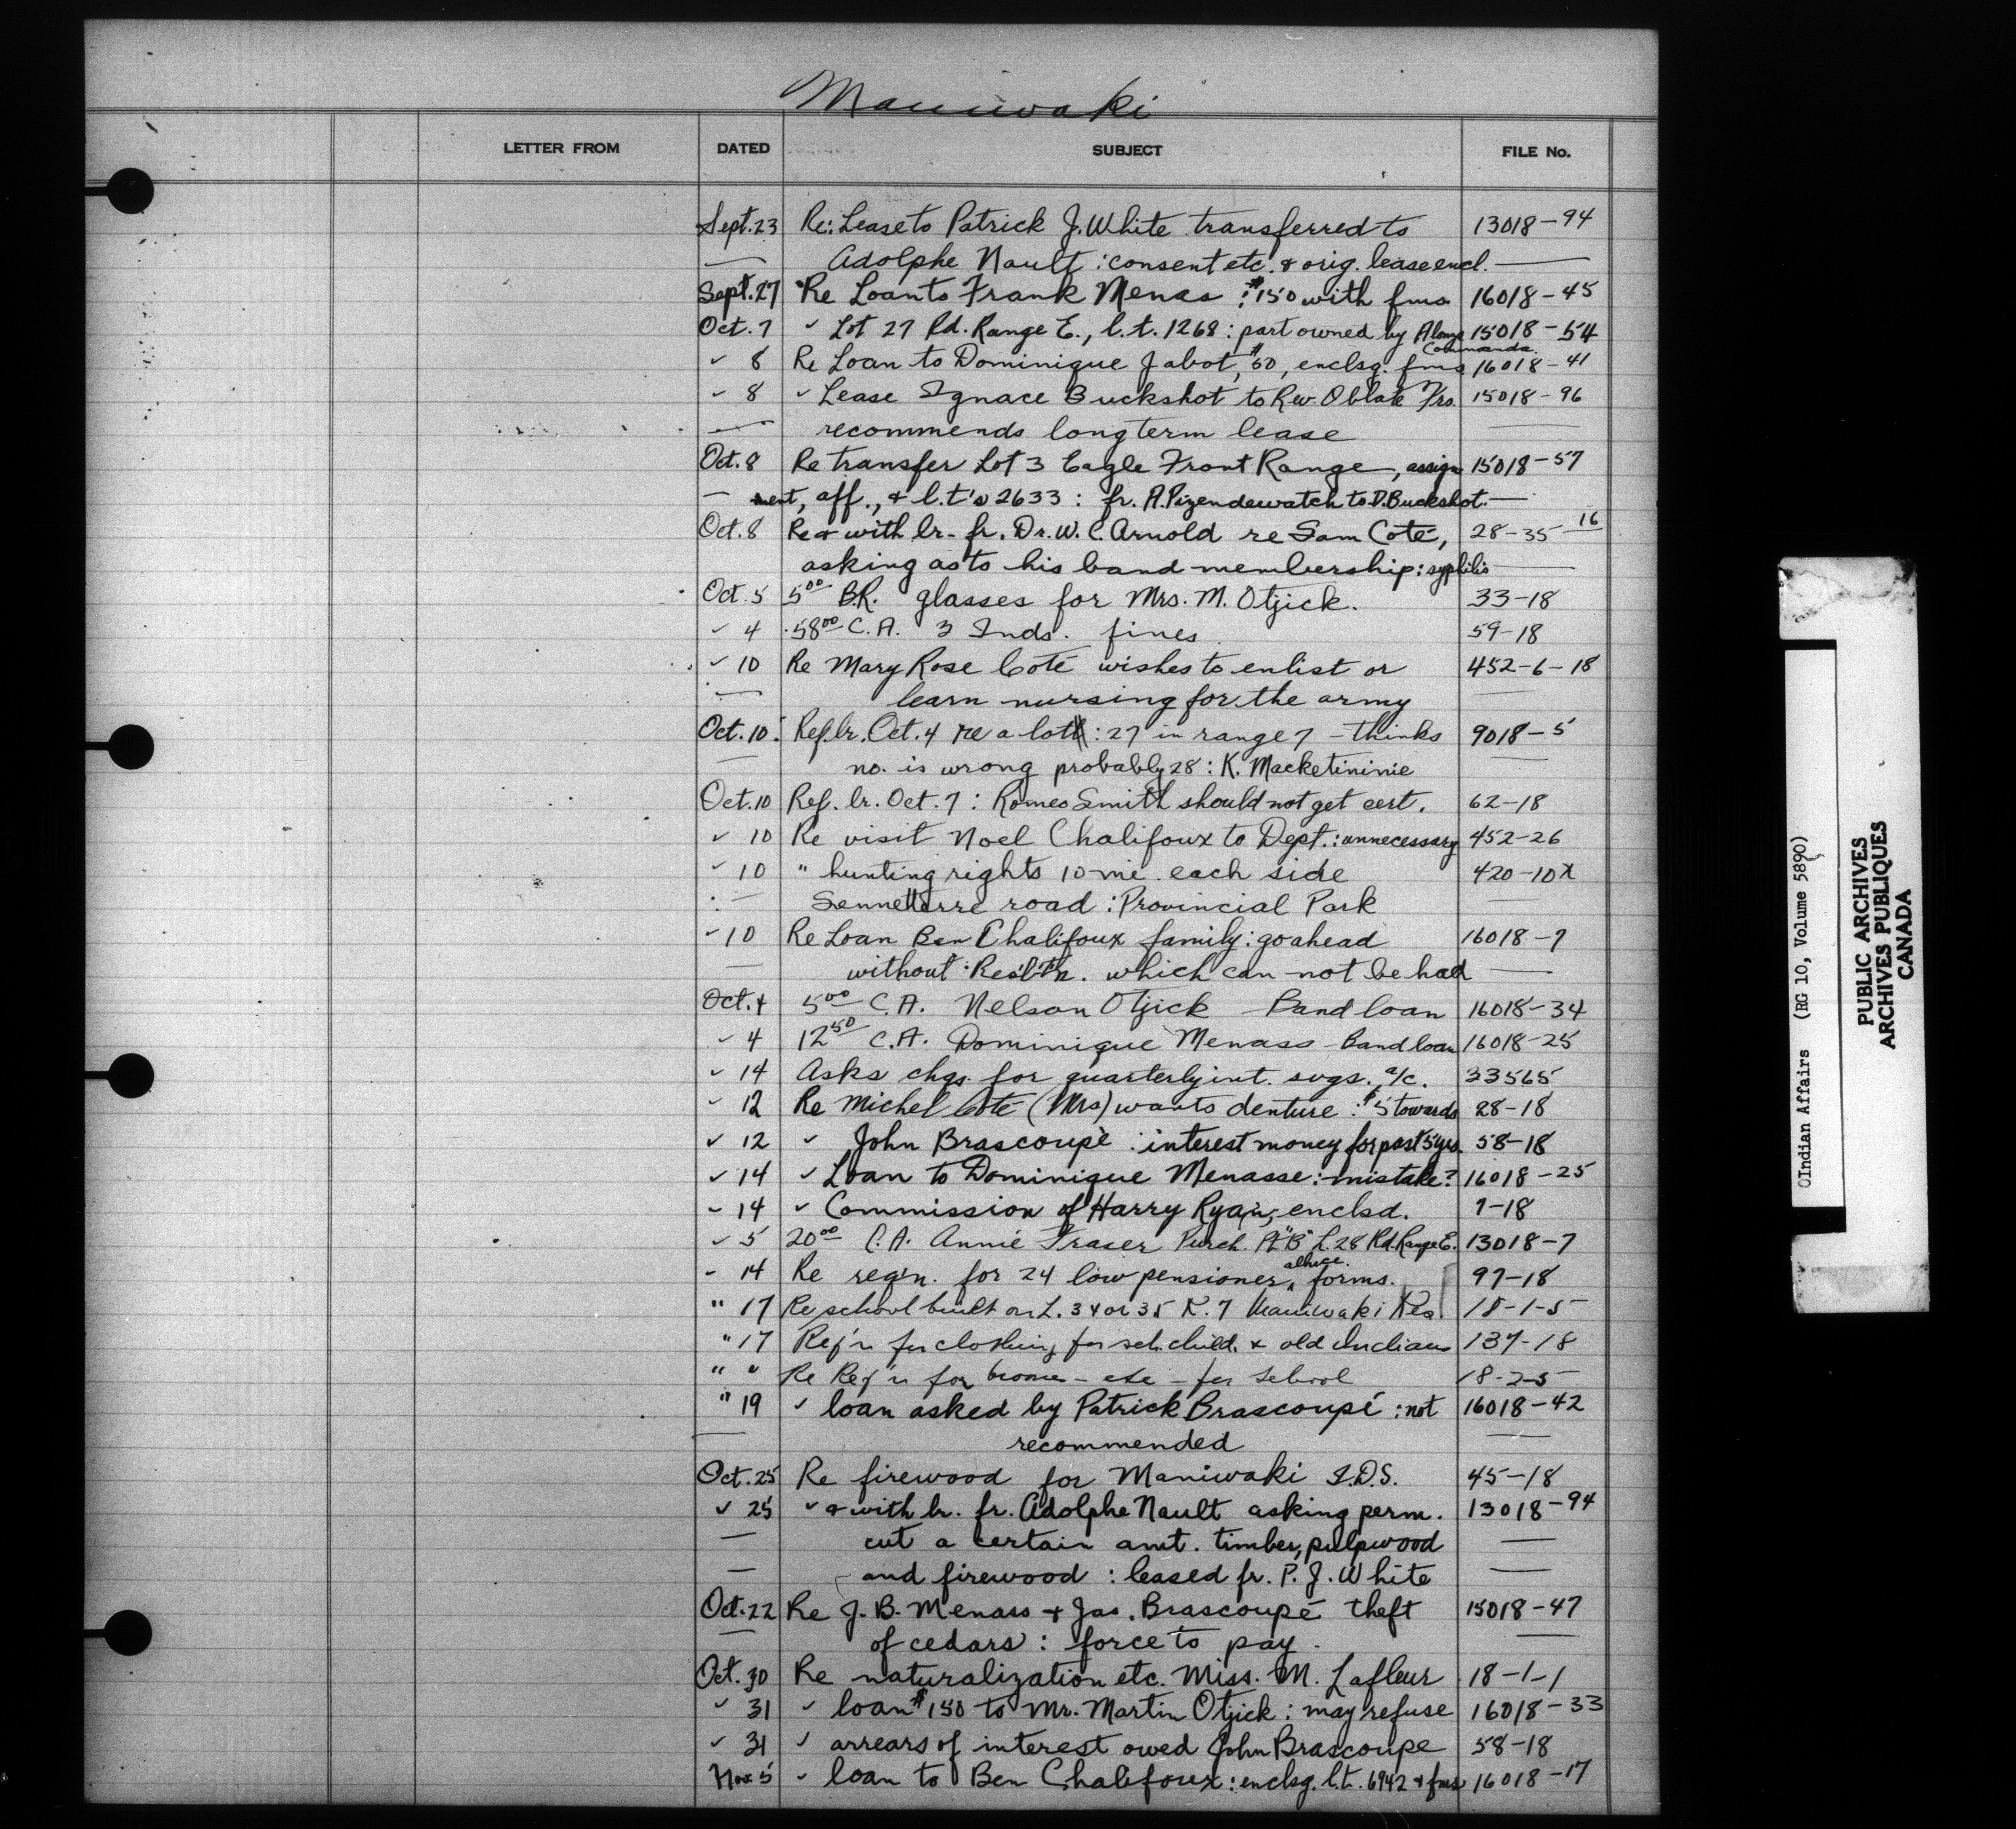 Maniwaki
LETTER FROM DATED SUBJECT FILE No.
Sept. 23 Re: Lease to Patrick J. White transferred to 13018-94
— Adolphe Nault : consent etc. & orig. lease encl. —
Sept. 27 Re Loan to Frank Menas : $150 with fms 16018-45
Oct. 7 " Lot 27 Rd. Range E., l.t. 1268 : part owned by Alonzo 15018-54
Commanda.
" 8 Re Loan to Dominique Jabot, $50, enclsg. fms 16018-41
" 8 " Lease Ignace Buckshot to Rev. Oblate Frs. 15018-96
— recommends long term lease —
Oct. 8 Re transfer Lot 3 Eagle Front Range, assign 15018-57
— ment, aff., & l.t's 2633 : fr. A. Pizendewatch to D. Buckshot. —
Oct. 8 Re & with lr. fr. Dr. W. C. Arnold re Sam Coté, 28-35-16
asking as to his band membership : syphilis —
Oct. 5 5.00 B.R. glasses for Mrs. M. Otjick. 33-18
" 4 58.00 C.A. 3 Inds. fines 59-18
" 10 Re Mary Rose Coté wishes to enlist or 452-6-18
— learn nursing for the army —
Oct. 10 Ref. lr. Oct. 4 re a lot : 27 in range 7 - thinks 9018-5
— no. is wrong probably 28 : K. Macketininie —
Oct. 10 Ref. lr. Oct. 7 : Romeo Smith should not get cert. 62-18
" 10 Re visit Noel Chalifoux to Dept. : unnecessary 452-26
" 10 " hunting rights 10 mi. each side 420-10x
— Sennetterre road : Provincial Park —
" 10 Re Loan Ben Chalifoux family : go ahead 16018-7
— without Res'l't'n. which can not be had —
Oct. 4 5.00 C.A. Nelson Otjick Band loan 16018-34
" 4 12.50 C.A. Dominique Menass - Band loan 16018-25
" 14 Asks chqs. for quarterly int. svgs. a/c. 33565
" 12 Re Michel Coté (Mrs) wants denture : $5 towards 28-18
" 12 " John Brascoupé : interest money for past 5 yrs. 58-18
" 14 " Loan to Dominique Menasse : mistake? 16018-25
" 14 " Commission of Harry Ryan, enclsd. 7-18
" 5 20.00 C.A. Annie Fraser Purch. Pt "B" L. 28 Rd. Range E. 13018-7
" 14 Re reqn. for 24 low pensioner allnce. forms. 97-18
" 17 Re school built on L. 34 or 35 R. 7 Maniwaki Res. 18-1-5
" 17 Req'n for clothing for sch. child. & old Indians 137-18
" " Re Req'n for brooms - etc - for School 18-2-5
" 19 " loan asked by Patrick Brascoupé : not 16018-42
— recommended —
Oct. 25 Re firewood for Maniwaki I.D.S. 45-18
" 25 " & with lr. fr. Adolphe Nault asking perm. 13018-94
— cut a certain amt. timber, pulpwood —
— and firewood : leased fr. P. J. White
Oct. 22 Re J. B. Menass & Jas. Brascoupé theft 15018-47
— of cedars : force to pay. —
Oct. 30 Re naturalization etc. Miss. M. Lafleur 18-1-1
" 31 " loan $150 to Mr. Martin Otjick : may refuse 16018-33
" 31 " arrears of interest owed John Brascoupe 58-18
Nov 5 " loan to Ben Chalifoux : enclsg. l.t. 6942 & fms 16018-17
Indian Affairs (RG 10, Volume 5890)
PUBLIC ARCHIVES
ARCHIVES PUBLIQUES
CANADA